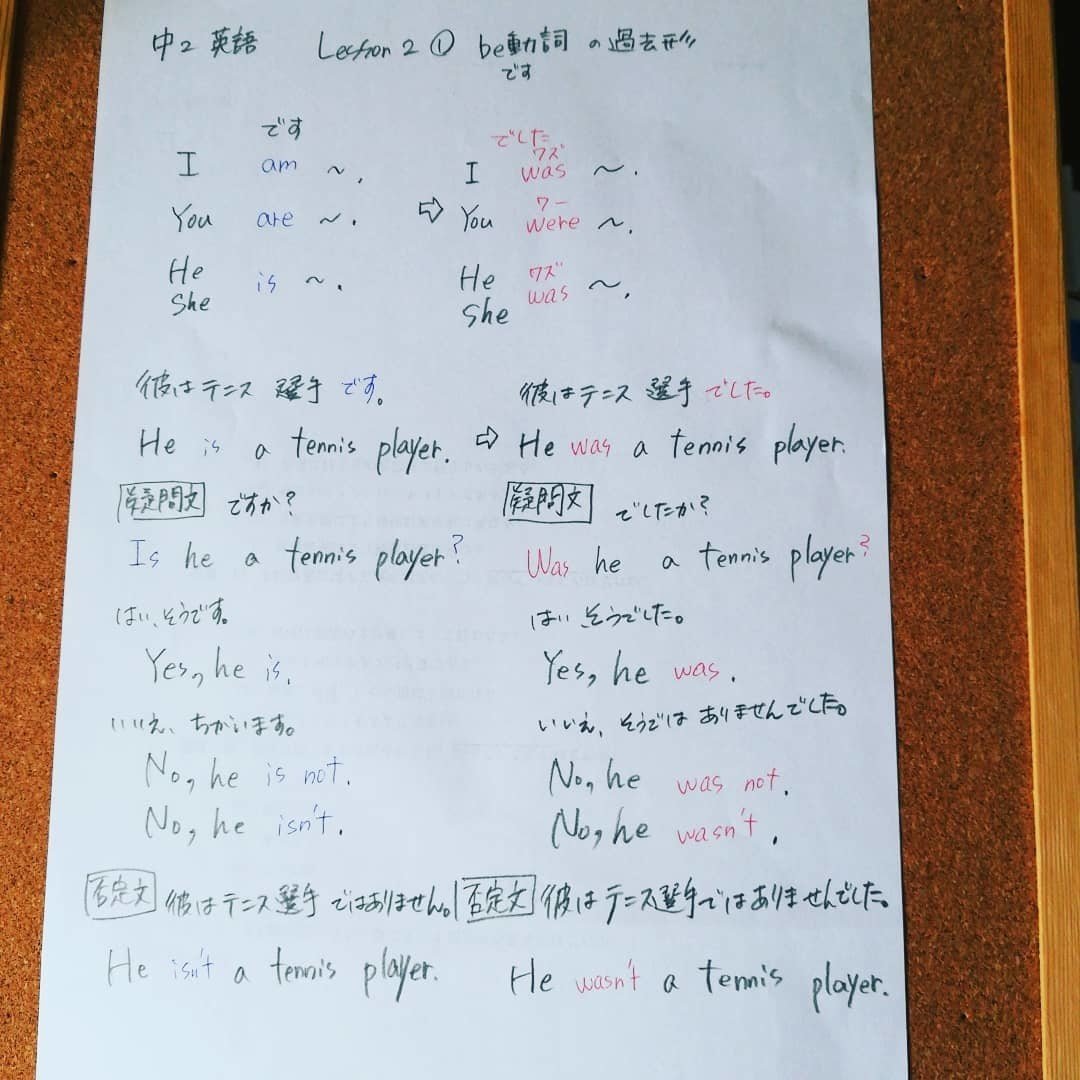 中2 英語 Lesson 2 ① be動詞 の過去形
です
です でした
ワズ
I am ~. I was ~.
ワー
You are ~. ⇨ You were ~.
He is ~. He ワズ was ~.
She She
彼はテニス 選手 です。 彼はテニス 選手 でした。
He is a tennis player. ⇨ He was a tennis player.
疑問文 ですか? 疑問文 でしたか?
Is he a tennis player? Was he a tennis player?
はい、そうです。 はい、そうでした。
Yes, he is. Yes, he was.
いいえ、ちがいます。 いいえ、そうでは ありませんでした。
No, he is not. No, he was not.
No, he isn't. No, he wasn't.
否定文 彼はテニス選手ではありません。 否定文 彼はテニス選手ではありませんでした。
He isn't a tennis player. He wasn't a tennis player.